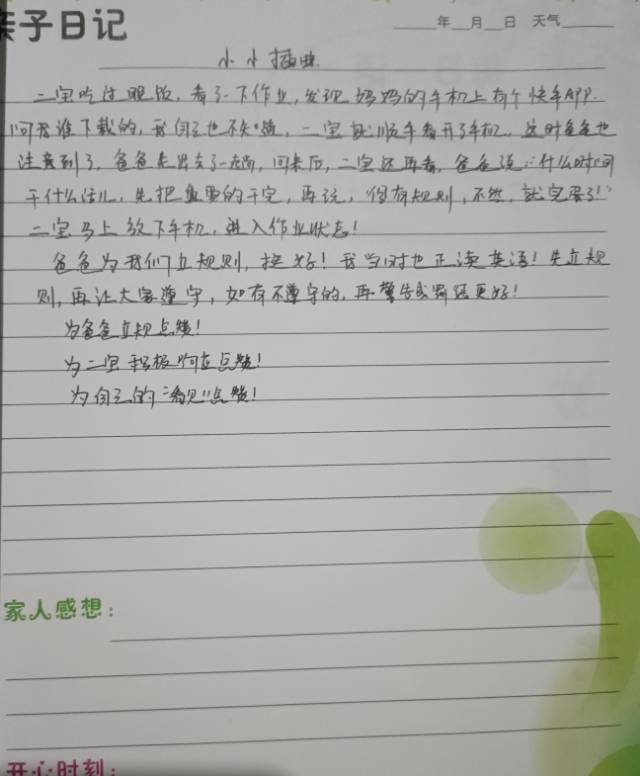 亲子日记
年 月 日 天气
小小插曲
二宝吃过晚饭，看了一下作业，发现妈妈的手机上有个快手APP.
问是谁下载的，我自己也不知道，二宝就顺手看开了手机，这时爸爸也
注意到了，爸爸走出去了一趟，回来后，二宝还再看，爸爸说：什么时间
干什么活儿，先把重要的干完，再玩，得有规则，不然，就完蛋了!
二宝马上放下手机，进入作业状态!
爸爸为我们立规则，挺好! 我当时也正读英语! 先立规
则，再让大家遵守，如有不遵守的，再警告或
更好!
为爸爸立规点赞!
为二宝积极响应点赞!
为自己的 点赞!
家人感想：
开心时刻：